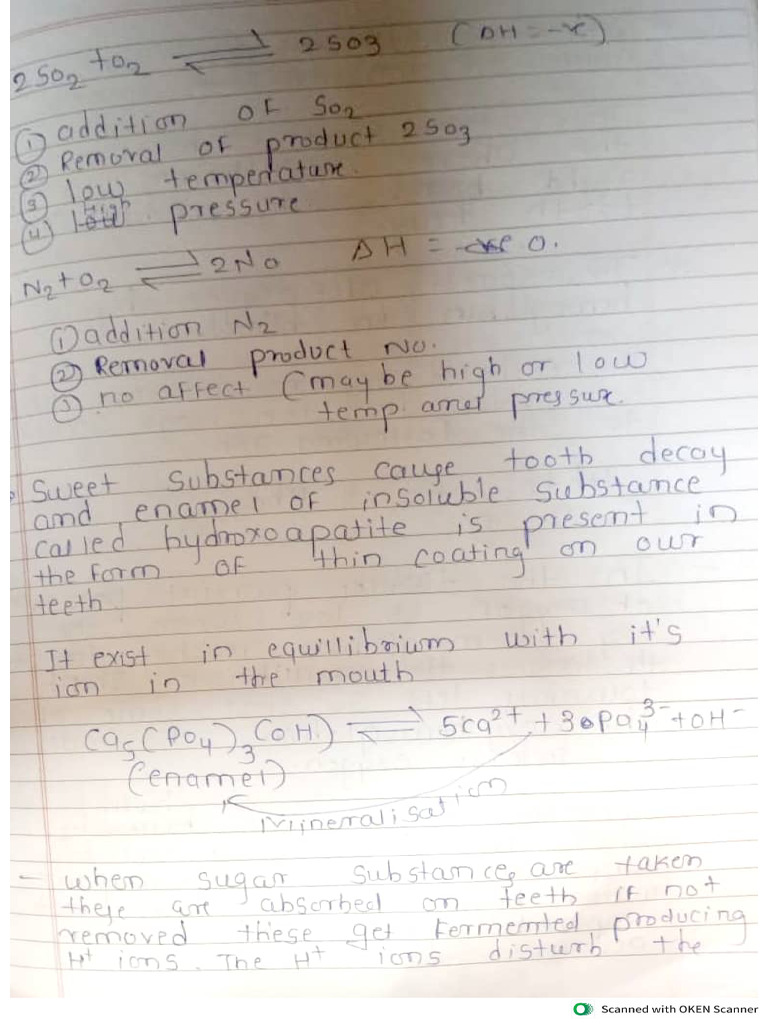 2SO2 + O2 ⇌ 2SO3 (ΔH = -ve)
① addition OF SO2
② Removal OF product 2SO3
③ low temperature.
④ High pressure
N2 + O2 ⇌ 2NO ΔH = 0.
① addition N2
② Removal product NO.
③ no affect (may be high or low
temp. and pressure.
Sweet substances cause tooth decay
and enamel OF insoluble substance
called hydroxoapatite is present in
the form OF thin coating on our
teeth
It exist in equillibrium with it's
ion in the mouth
Ca5(PO4)3(OH) ⇌ 5Ca2+ + 3PO4 3- + OH-
(enamel)
Mineralisation
- when sugar substances are taken
these are absorbed on teeth if not
removed these get fermented producing
H+ ions. The H+ ions disturb the
Scanned with OKEN Scanner